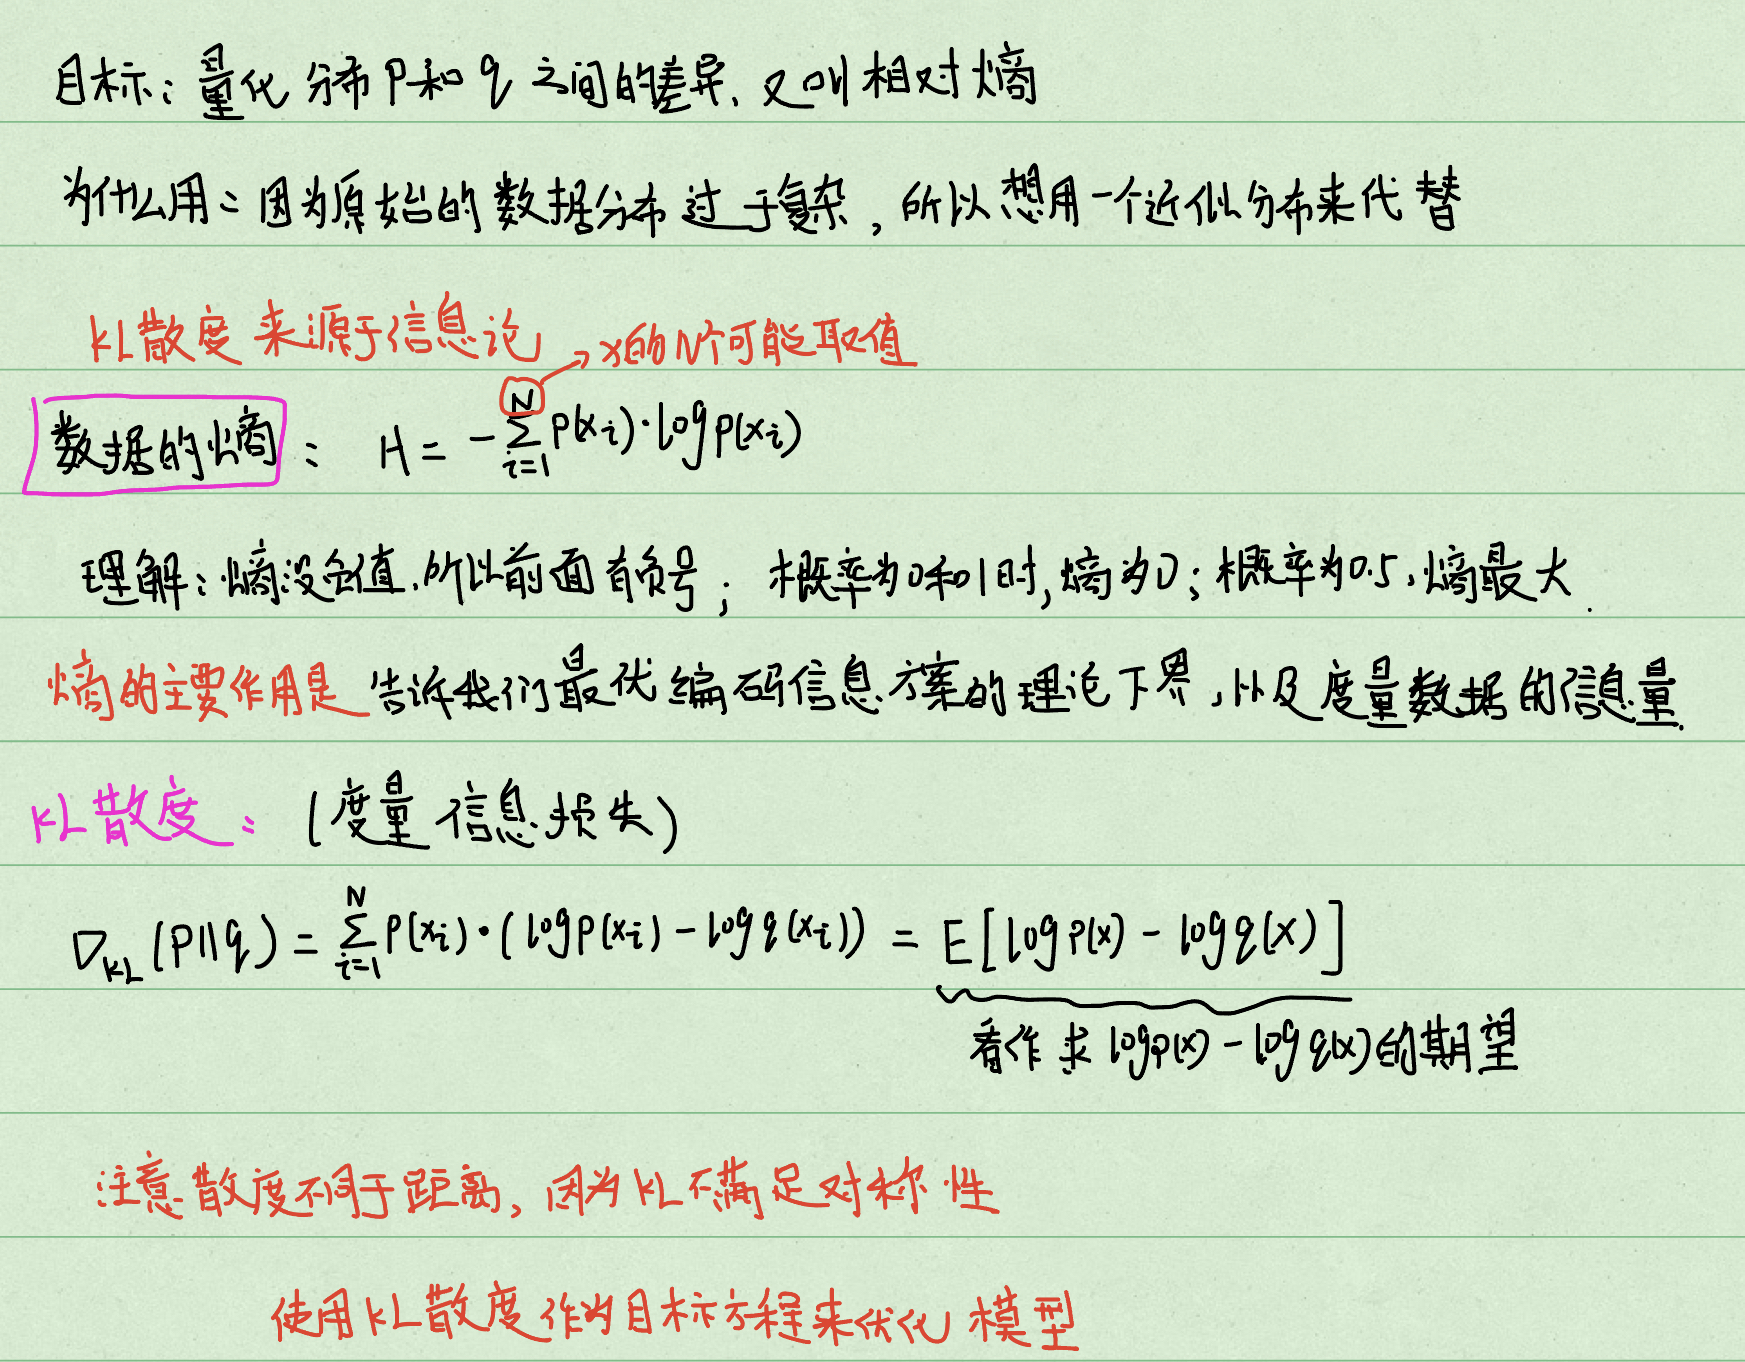 目标：量化分布P和q之间的差异、又叫相对熵
为什么用：因为原始的数据分布过于复杂，所以想用一个近似分布来代替
KL散度来源于信息论
x的N个可能取值
数据的熵： H = -∑_{i=1}^{N} P(x_i)·log p(x_i)
理解：熵没负值，所以前面有负号；概率为0和1时，熵为0；概率为0.5，熵最大.
熵的主要作用是告诉我们最优编码信息方案的理论下界，以及度量数据的信息量.
KL散度：（度量信息损失）
D_{KL}(P||q) = ∑_{i=1}^{N} P(x_i)·(log p(x_i) - log q(x_i)) = E[log p(x) - log q(x)]
看作求 log p(x) - log q(x) 的期望
注意散度不同于距离，因为KL不满足对称性
使用KL散度作为目标方程来优化模型